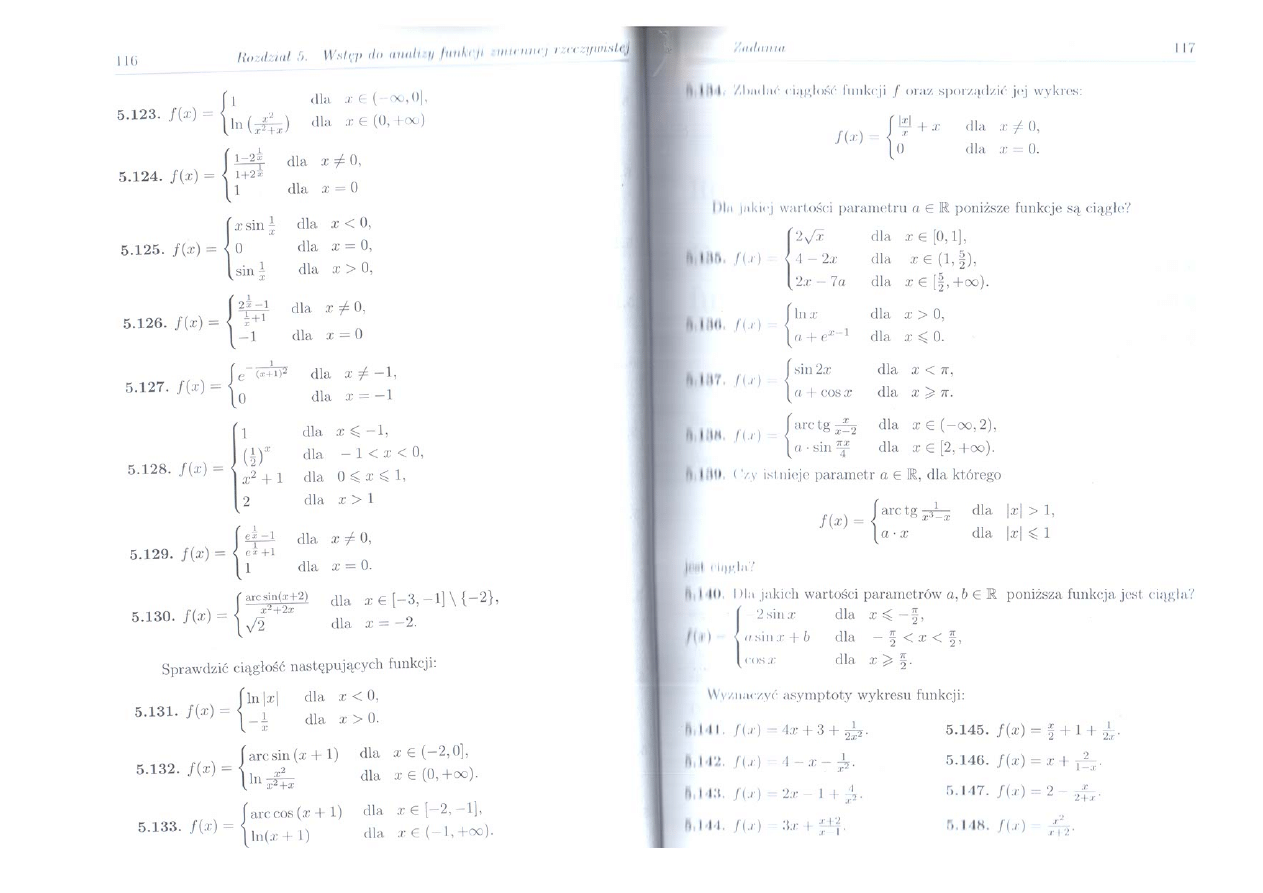 116 Rozdział 5. Wstęp do analizy funkcji zmiennej rzeczywistej
5.123. f(x) = { 1 dla x ∈ (−∞,0],
ln (x²/(x²+x)) dla x ∈ (0, +∞)
5.124. f(x) = { (1−2^(1/x))/(1+2^(1/x)) dla x ≠ 0,
1 dla x = 0
5.125. f(x) = { x sin 1/x dla x < 0,
0 dla x = 0,
sin 1/x dla x > 0,
5.126. f(x) = { (2^(1/x)−1)/(1/x+1) dla x ≠ 0,
−1 dla x = 0
5.127. f(x) = { e^(−1/(x+1)²) dla x ≠ −1,
0 dla x = −1
5.128. f(x) = { 1 dla x ⩽ −1,
(1/2)^x dla −1 < x < 0,
x² + 1 dla 0 ⩽ x ⩽ 1,
2 dla x > 1
5.129. f(x) = { (e^(1/x)−1)/(e^(1/x)+1) dla x ≠ 0,
1 dla x = 0.
5.130. f(x) = { arc sin(x+2)/(x²+2x) dla x ∈ [−3, −1] \ {−2},
√2 dla x = −2.
Sprawdzić ciągłość następujących funkcji:
5.131. f(x) = { ln |x| dla x < 0,
−1/x dla x > 0.
5.132. f(x) = { arc sin (x + 1) dla x ∈ (−2,0],
ln x²/(x²+x) dla x ∈ (0,+∞).
5.133. f(x) = { arc cos (x + 1) dla x ∈ [−2, −1],
ln(x + 1) dla x ∈ (−1, +∞).
Zadania 117
5.134. Zbadać ciągłość funkcji f oraz sporządzić jej wykres:
f(x) = { |x|/x + x dla x ≠ 0,
0 dla x = 0.
Dla jakiej wartości parametru a ∈ ℝ poniższe funkcje są ciągłe?
5.135. f(x) = { 2√x dla x ∈ [0, 1],
4 − 2x dla x ∈ (1, 5/2),
2x − 7a dla x ∈ [5/2, +∞).
5.136. f(x) = { ln x dla x > 0,
a + e^(x−1) dla x ⩽ 0.
5.137. f(x) = { sin 2x dla x < π,
a + cos x dla x ⩾ π.
5.138. f(x) = { arc tg x/(x−2) dla x ∈ (−∞, 2),
a · sin πx/4 dla x ∈ [2, +∞).
5.139. Czy istnieje parametr a ∈ ℝ, dla którego
f(x) = { arc tg 1/(x³−x) dla |x| > 1,
a · x dla |x| ⩽ 1
jest ciągła?
5.140. Dla jakich wartości parametrów a, b ∈ ℝ poniższa funkcja jest ciągła?
f(x) = { −2 sin x dla x ⩽ −π/2,
a sin x + b dla −π/2 < x < π/2,
cos x dla x ⩾ π/2.
Wyznaczyć asymptoty wykresu funkcji:
5.141. f(x) = 4x + 3 + 1/(2x²). 5.145. f(x) = x/2 + 1 + 1/(2x).
5.142. f(x) = 4 − x − 1/x². 5.146. f(x) = x + 2/(1−x).
5.143. f(x) = 2x − 1 + 4/x². 5.147. f(x) = 2 − x/(2+x).
5.144. f(x) = 3x + (x+2)/(x−1). 5.148. f(x) = x²/(x+2).